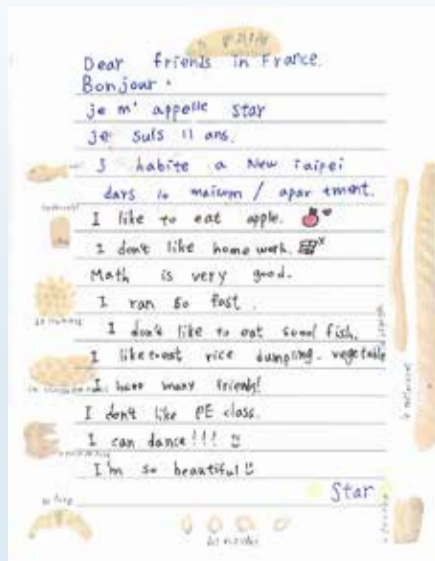 Dear friends in France.
Bonjour.
je m' appelle star
je suis 11 ans.
J habite a New Taipei
days la maison / apartment.
I like to eat apple.
I don't like home work.
Math is very good.
I ran so fast.
I don't like to eat fish.
I like to eat rice dumpling. vegetable
I have many friends!
I don't like PE class.
I can dance!!!
I'm so beautiful
Star